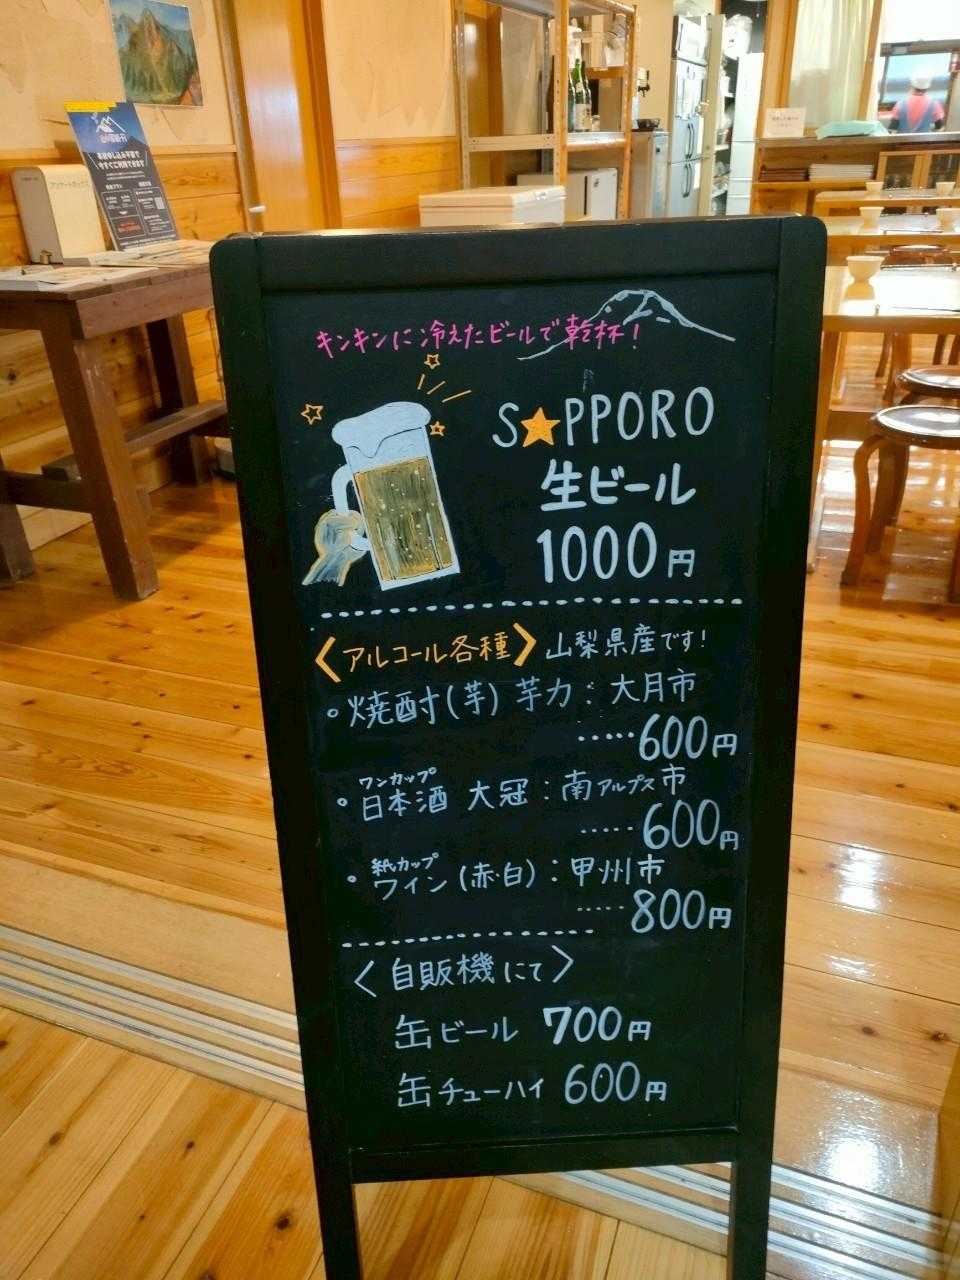 本日申し込み不要で
今すぐご利用できます
アンケートボックス
キンキンに冷えたビールで乾杯!
S★PPORO
生ビール
1000円
〈アルコール各種〉山梨県産です!
・焼酎(芋) 芋力:大月市
.....600円
ワンカップ
・日本酒 大冠:南アルプス市
.....600円
紙カップ
・ワイン(赤・白):甲州市
......800円
〈自販機にて〉
缶ビール 700円
缶チューハイ 600円